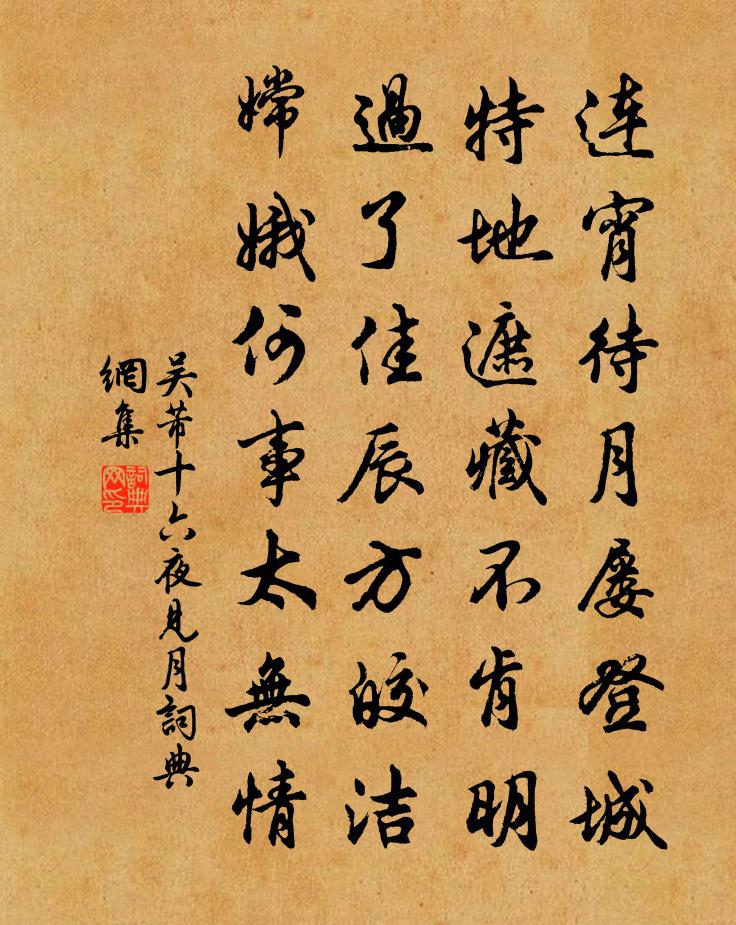 連宵待月屢登城
特地遮藏不肯明
過了佳辰方皎洁
嫦娥何事太無情
吴芾十六夜見月詞典
網集
詞典
网印